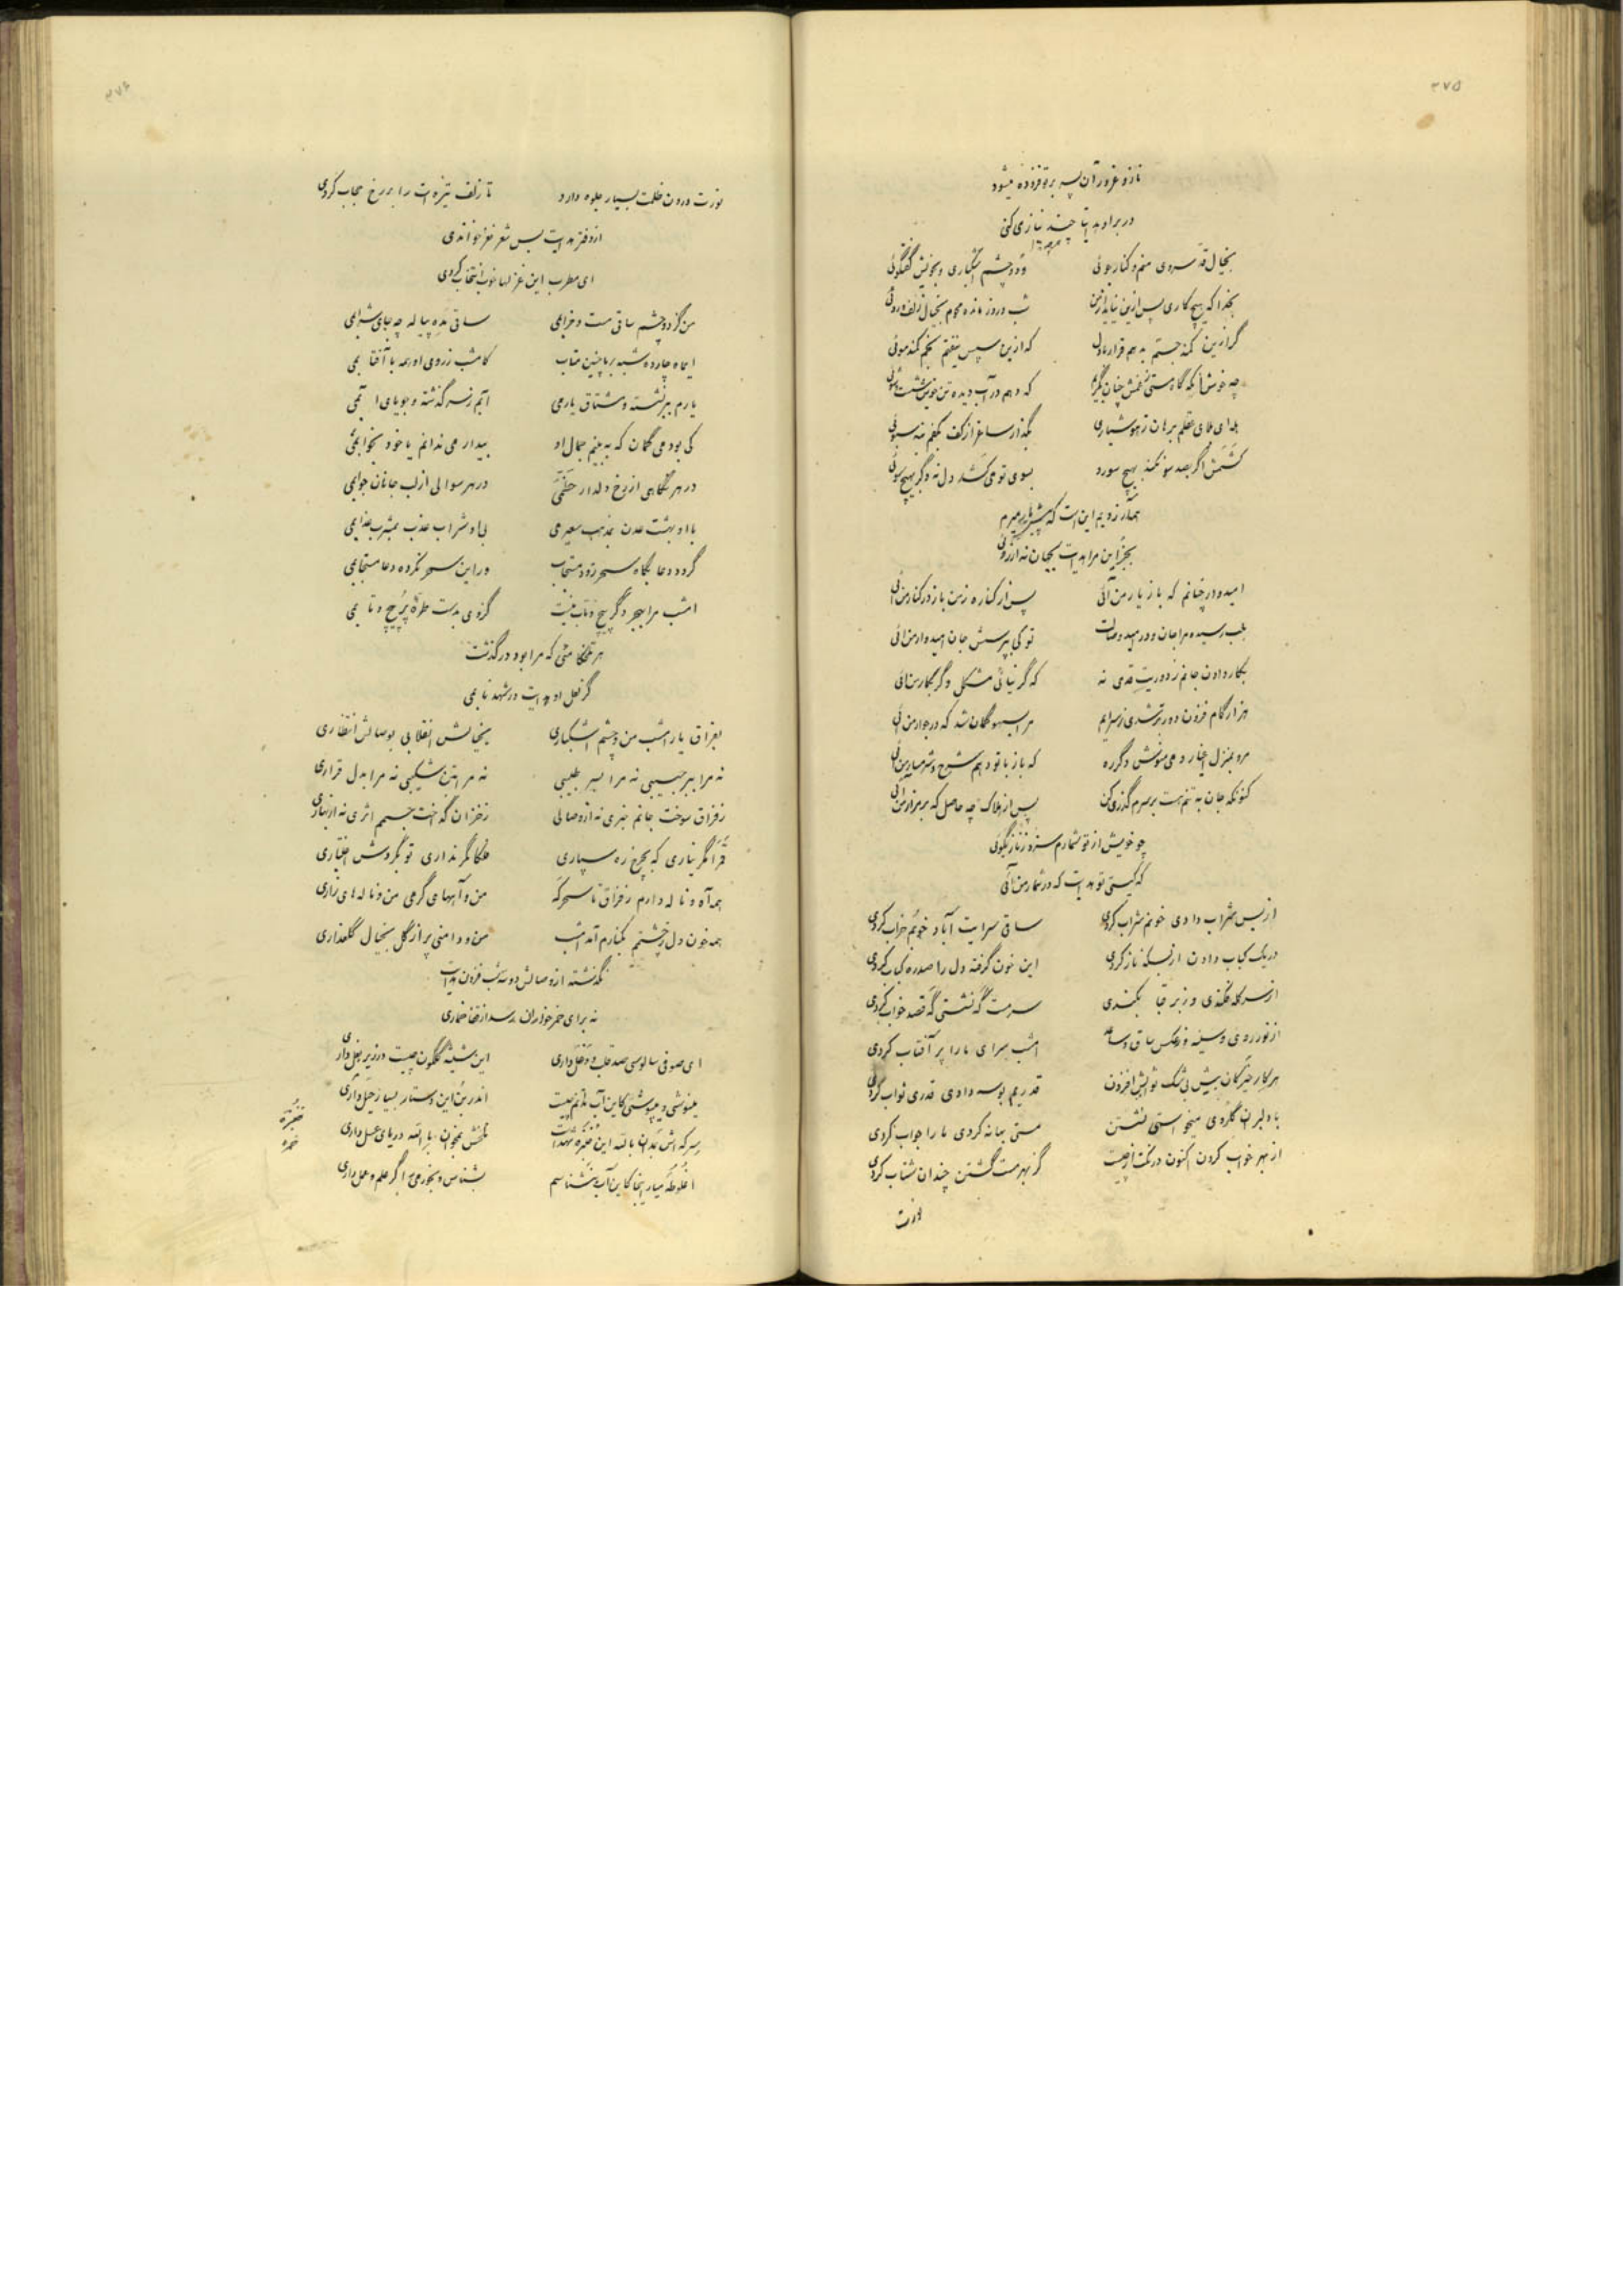 ۳۷۵
ناز و غرور آن پسر بر تو فزوده میشود
در بر او هدایتا چند نیاز می کنی
بخیال قد سروی منم و کنار جوئی دو چشم اشکباری و بخویش گفتگوئی
بخدا که هیچ کاری پس ازین نیاید از من شب و روز مانده محوم بخیال زلف و روئی
گر ازین کمند جستم بدهم قرار با دل که ازین سپس نیفتم بخم کمند موئی
چه خوش آنکه گاه مستی ز غمش چنان بگریم که دهم در آب دیده تن خویش شست شوئی
بده ای بلای عقلم برهان ز هوشیاری بگذار ساغر از کف بکفم بنه سبوئی
کشمش اگر بصد سو نکند بهیچ سو رو بسوی تو می کشد دل نه دگر بهیچ سوئی
همه آرزویم این است که پیش یار میرم
بجز این مرا هدایت بجهان نه آرزوئی
امیدوار چنانم که باز یار من آئی پس از کناره ز من باز در کنار من آئی
بلب رسیده مرا جان و در امید وصالت تو کی بپرسش جان امیدوار من آئی
بکار دادن جانم ز دوریت قدمی نه که گر نیائی مشکل دگر بکار من آئی
هزار گام فزون دورتر شدی ز سرایم مرا بسهو گمان شد که در جوار من آئی
مرو بمنزل اغیار و می منوش دگر ره که باز با تو دهم شرح و شرمسار من آئی
کنونکه جان به تنم هست بر سرم گذری کن پس از هلاک چه حاصل که بر مزار من آئی
چو خویش از تو شمارم ستزه ز ناز بگوئی
که کیستی تو هدایت که در شمار من آئی
از بس شراب دادی خونم شراب کردی ساقی سرایت آباد خوبم خراب کردی
در یک کباب دادن از بسکه ناز کردی این خون گرفته دل را صدره کباب کردی
از سر کله فکندی و ز بر قبا بکندی سرمست گه نشستی گه قصد خواب کردی
از نور روی و سینه وز عکس ساق و ساعد امشب سرای ما را پر آفتاب کردی
هر کار خیر کان بیش بی شک ثوابش افزون قدریم بوسه دادی قدری ثواب کردی
با دلبران گلروی میخواستی نشستن مستی بهانه کردی ما را جواب کردی
از بهر خواب کردن اکنون درنگت از چیست گر بهر مست گشتن چندان شتاب کردی
نورت
۳۷۶
نورت درون ظلمت بسیار جلوه دارد تا زلف تیره ات را بر رخ حجاب کردی
از دفتر هدایت بس شعر نغز خواندی
ای مطرب این غزلها خوب انتخاب کردی
من گر دو چشم ساقی مست و خرابمی ساقی بده پیاله چه جای شرابمی
ای ماه چارده شبه بر ما چنین متاب کامشب ز روی او همه با آفتابمی
یارم ببر نشسته و مشتاق یارمی آبم ز سر گذشته و جویای آبمی
کی بود می گمان که ببینم جمال او بیدار می ندانم یا خود بخوابمی
در هر نگاهی از رخ دلدار حظمی در هر سوالی از لب جانان جوابمی
با او بهشت عدن بمذهب سعیرمی بی او شراب عذب بمشرب عذابمی
گردد دعا بگاه سحر زود مستجاب ور این سحر نکرده دعا مستجابمی
امشب مرا بهجر دگر پیچ و تاب نیست گر وی بدست طره پر پیچ و تابمی
هر تلخکامئی که مرا بود درگذشت
گر لعل او هدایت در شهد نابمی
بفراق یار امشب من و چشم اشکباری بخیالش انقلابی بوصالش انتظاری
نه مرا ببر حبیبی نه مرا بسر طبیبی نه مرا بتن شکیبی نه مرا بدل قراری
ز فراق سوخت جانم خبری نه از وصالی ز خزان گداخت جسمم اثری نه از بهاری
قمرا مگر نیاری که بچرخ ره سپاری فلکا مگر نداری تو بگردش اختیاری
همه آه و ناله دارم ز فراق تا سحرگه من و آههای گرمی من و ناله های زاری
همه خون دل ز چشمم بکنارم آمد امشب من و دامنی پر از گل بخیال گلعذاری
نگذشته از وصالش دو سه شب فزون هدایت
نه برای خمر خواران رسد از قضا خماری
ای صوفی سالوسی صد قلب و دغل داری این شیشه گلگون چیست در زیر بغل داری
مینوشی و میپوشی کاین آب ندانم چیست اندر بن این دستار بسیار حیل داری
سرکه اش بمدان بالله این خنبره شهد است تلخش بمخوان بالله دریای عسل داری
اغلوطه میار اینجا کاین آب نشناسم بشناس و بخور می را گر علم و عمل داری
خنبره
خمره